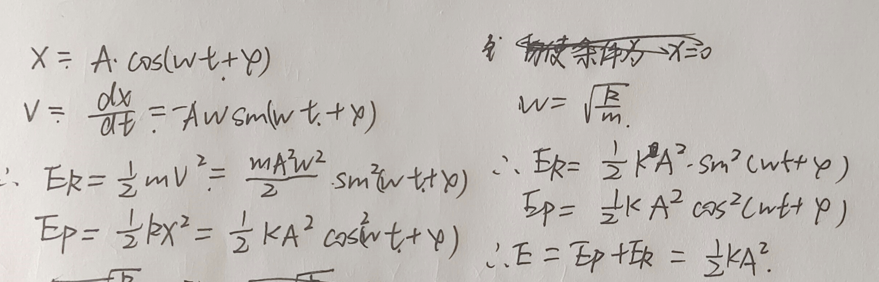 x = A·cos(wt+φ)
V = dx/dt = -Aw sin(wt+φ)
∴ Ek = 1/2 mV² = mA²w²/2 ·sin²(wt+φ)
Ep = 1/2 kx² = 1/2 kA² cos²(wt+φ)
w = √(k/m)
∴ Ek = 1/2 kA²·sin²(wt+φ)
Ep = 1/2 kA² cos²(wt+φ)
∴ E = Ep+Ek = 1/2 kA².